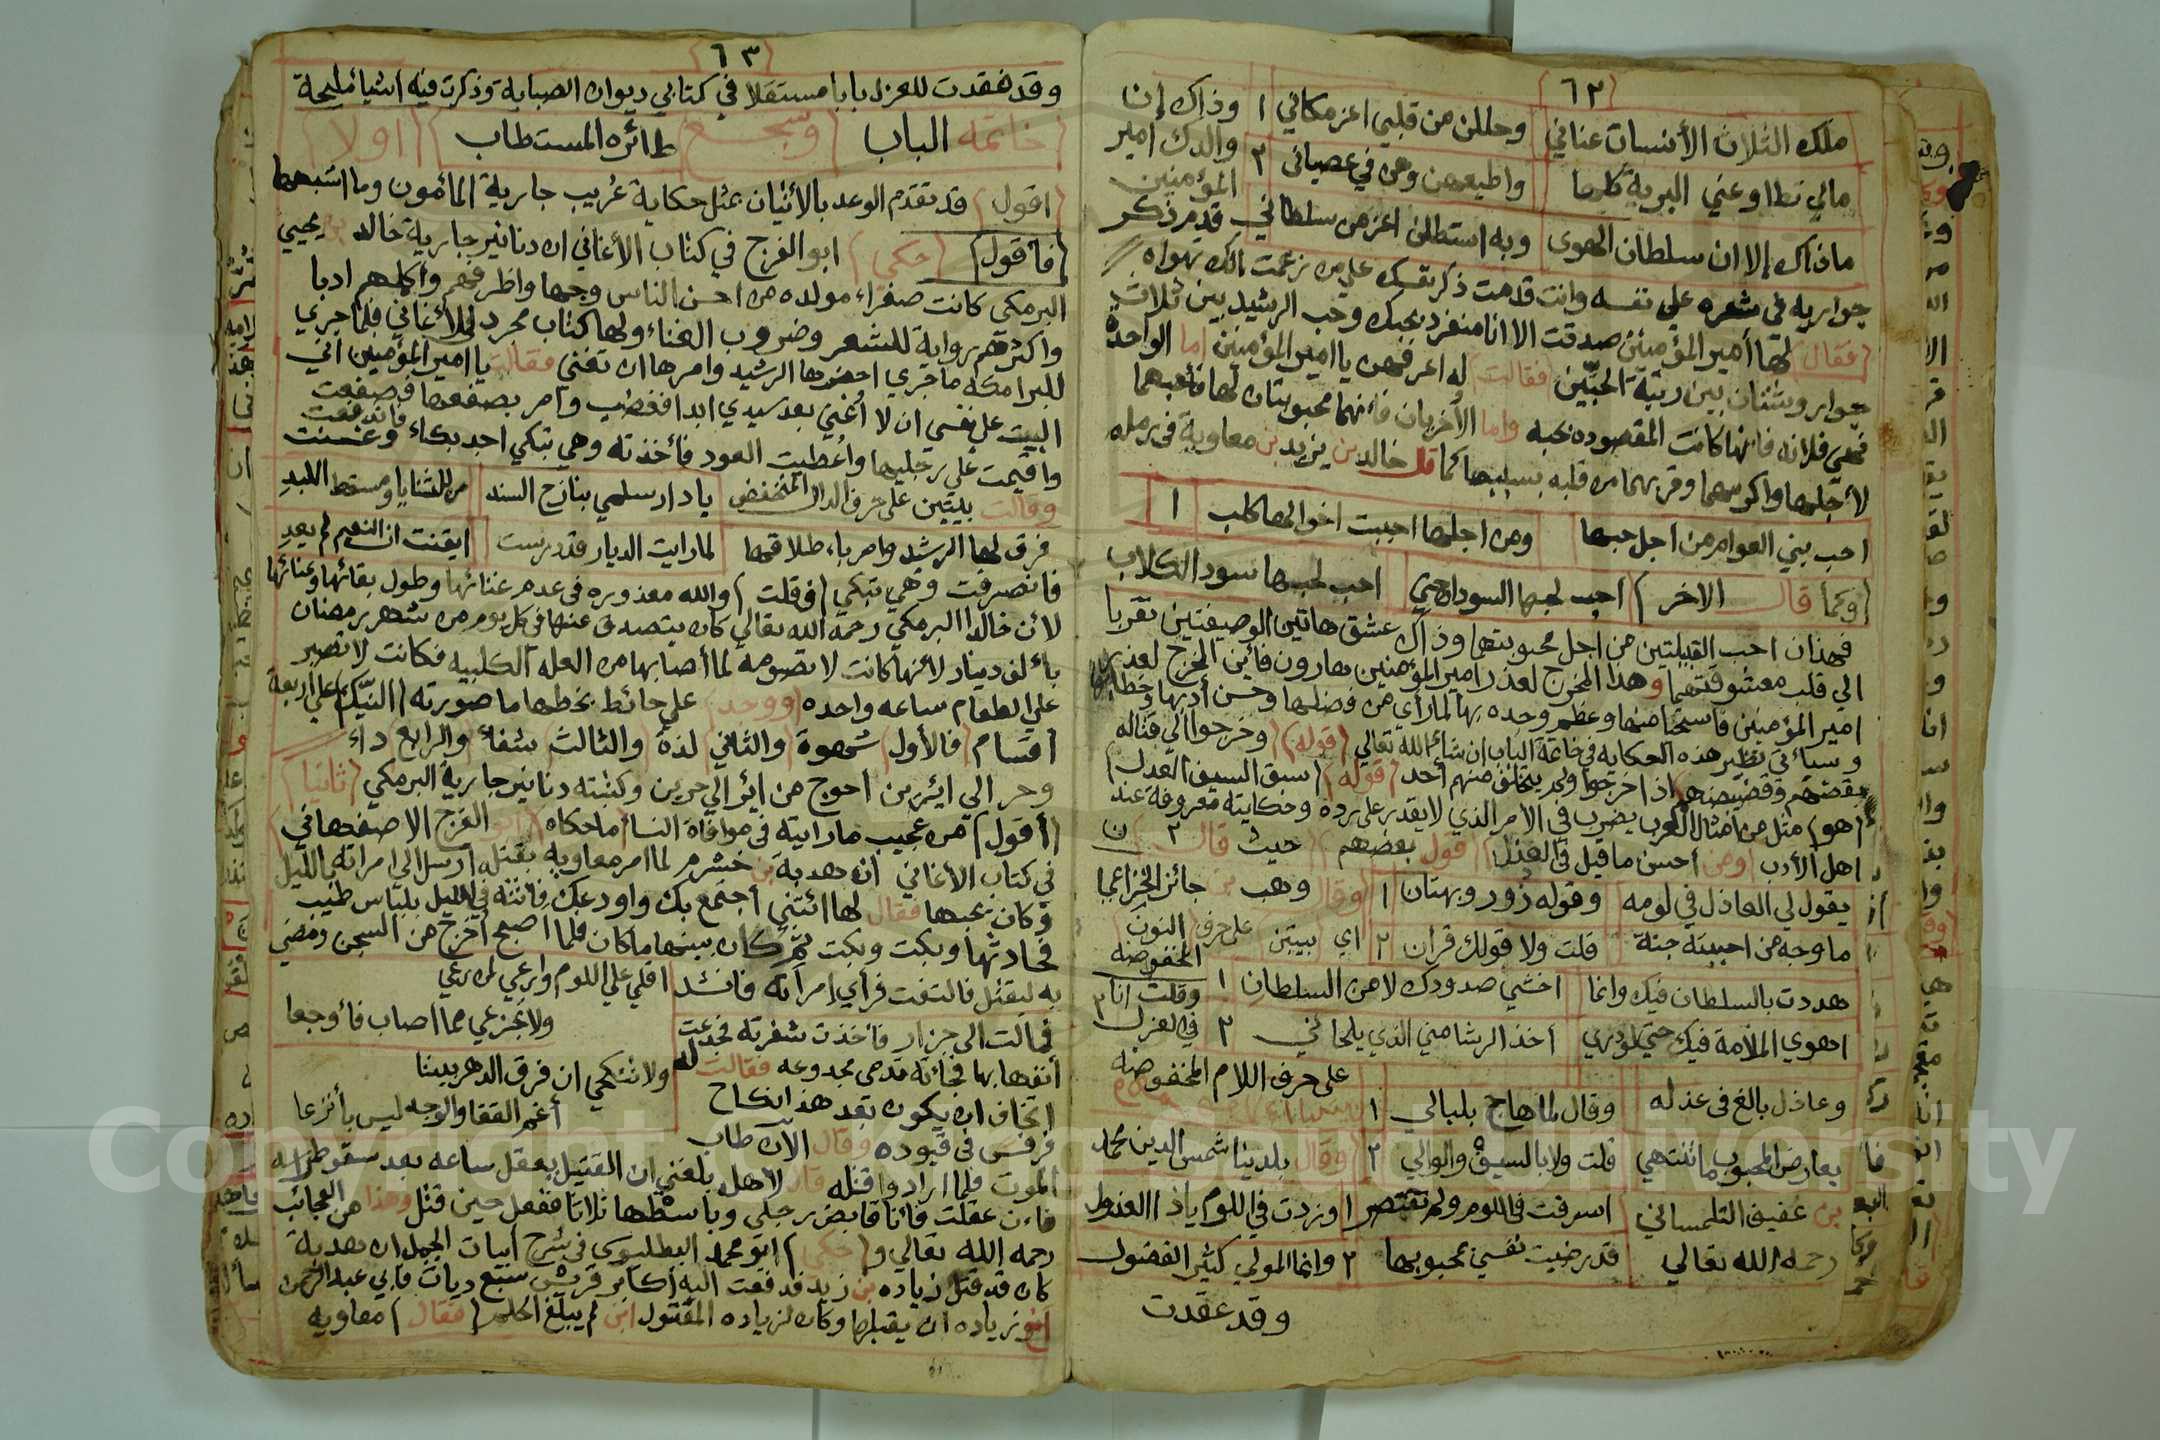 (٦٢)
ملك الثلاث الأنسات عناني وحللن من قلبي اعز مكاني ١ وذاك إن
والدك امير
مالي تطاوعني البرية كلها واطيعهن وهن في عصياني ٢ المؤمنين
ماذاك إلا ان سلطان الهوى وبه استطلن اعز من سلطاني قدم ذكر
جواريه في شعره على نفسه وانت قدمت ذكر نفسك على من زعمت انك تهواه
(فقال) لها أمير المؤمنين صدقت الا انا منفرد بحبك وحب الرشيد بين ثلاث
جوار وشتان بين رتبة الحبّين فقالت له اعرفهن يا امير المؤمنين إما الواحدة
فهي فلانه فانها كانت المقصوده بحبه واما الأخريان فأنهما محبوبتان لها فأحبهما
لأجلها واكرمهما وقربهما من قلبه بسببها كما قال خالد بن يزيد بن معاوية في رمله
احب بني العوام من اجل حبها ومن اجلها احببت اخوالها كلب ١
(وكما قال الاخر) احب لحبها السودان حتي احب لحبها سود الكلاب
فهذان احب القبيلتين من اجل محبوبتها وذاك عشق هاتين الوصيفتين تقربا
الي قلب معشوقتهما وهذا المخرج لعذر امير المؤمنين هارون فأين المخرج لعذر
امير المؤمنين فاستحا منها وعظم وجده بها لما رأي من فضلها وحسن أدبها وخطابها
وسيأتي نظير هذه الحكايه في خاتمة الباب ان شاء الله تعالي (قوله) (وخرجوا الي قتاله
بقضهم وقضيضهم) اذا خرجوا ولم يتخلف منهم أحد (قوله) (سبق السيف العدل)
(هو) مثل من أمثال العرب يضرب في الأمر الذي لا يقدر على رده وحكايته معروفة عند
اهل الأدب ومن أحسن ما قيل في العذل قول بعضهم حيث قال ٢
يقول لي العاذل في لومه وقوله زور وبهتان ١ وقال وهب بن جائز الخزاعي
ما وجه من احببته جنة قلت ولا قولك قران ٢ اي بيتين على حرف النون
المخفوضه
هددت بالسلطان فيك وانما اخشي صدودك لا من السلطان ١ وقلت انا
اهوي الملامة فيك حتي لو دري اخذ الرشا مني الذي يلحاني ٢ في العزل
على حرف اللام المخفوضه
وعاذل بالغ في عذله وقال لما هاج بلبالي ١
بعارض المحبوب ما تنتهي قلت ولا بالسيف والوالي ٢ (وقال) بلدينا شمس الدين محمد
بن عفيف التلمساني اسرفت في اللوم ولم تقتصر ١ وزدت في اللوم ياذا العذول
رحمه الله تعالي قد رضيت نفسي بمحبوبها ٢ وانما المولي كثير الفضول
وقد عقدت
(٦٣)
وقد عقدت للعزل بابا مستقلا في كتابي ديوان الصبابة وذكرت فيه اشيا مليحة
(خاتمه الباب) (وسجع) طائره المستطاب (اولا)
(اقول) قد تقدم الوعد بالأتيان بمثل حكاية غريب جارية المأمون وما اشبهها
(فأقول) (حكي) ابو الفرج في كتاب الأغاني ان دنانير جارية خالد بن يحيي
البرمكي كانت صفراء مولده من احسن الناس وجها واظرفهم واكملهم ادبا
واكثرهم رواية للشعر وضروب الغناء ولها كتاب مجرد في الأغاني فلما جري
للبرامكه ما جري احضرها الرشيد وامرها ان تغني فقالت يا امير المؤمنين اني
اليت علي نفسي ان لا اُغني بعد سيدي ابدا فغضب وامر بصفعها فصفعت
واقيمت على رجليها واُعطيت العود فأخذته وهي تبكي احر بكاء فاندفعت وغنت
وقالت بيتين على حرف الدال المنخفض يا دار سلمي بنازح السند من الثنايا ومسقط اللبدِ
فرق لها الرشيد وامر باطلاقها لما رايت الديار قد درست ايقنت ان النعيم لم يعدِ
فانصرفت وهي تبكي (وقلت) والله معذوره في عدم غنائها وطول بقائها وعنائها
لأن خالدا البرمكي رحمه الله تعالي كان يتصدق عنها في كل يوم من شهر رمضان
بألف دينار لأنها كانت لا تصومه لما أصابها من العله الكلبيه فكانت لا تصبر
علي الطعام ساعه واحده (ووجد) علي حائط بخطها ما صورته (النّيك) علي اربعة
أقسام فالأول شهوة والثاني لذة والثالث شفاء والرابع داء
وحر الي ايرين احوج من اير الي حرين وكتبته دنانير جارية البرمكي (ثانيا)
(أقول) من عجيب ما رايته في موافاة النسا ما حكاه (ابو) الفرج الاصفهاني
في كتاب الأغاني ان هدبة بن خشرم لما امر معاويه بقتله ارسل الي امراته بالليل
وكان يحبها فقال لها ائتني اجتمع بك واودعك فاتته في الليل بلباس طيب
فحادثها وبكت وبكت ثم كان بينهما ما كان فلما اصبح اخرج من السجن ومضي
به ليقتل فالتفت فرأي امراته فانشد اقلي علي اللوم وارعي لمن رعي
ولا تجزعي مما اصاب فأوجعا
فمالت الي جزار فأخذت شفرته فجدعت
أنفها بها فجاءته تدمي مجدوعه فقالت له ولا تنكحي ان فرق الدهر بيننا
اتخاف ان يكون بعد هذا نكاح أغم القفا والوجه ليس بأنزعا
فرفس في قيوده وقال الآن طاب
الموت فلما ارادوا قتله قال لأهله بلغني ان القتيل يعقل ساعه بعد سقوط راسه
فإن عقلت فأنا قابض رجلي وباسطها ثلاثا ففعل حين قتل وهذا من العجائب
رحمه الله تعالي و(حكي) ابو محمد البطليوسي في شرح ابيات الجمل ان هدبة
كان قد قتل زياده بن زيد فدفعت اليه أكابر قريش سبع ديات فأبي عبد الرحمن
اخو زياده ان يقبلها وكان لزياده المقتول ابن لم يبلغ الحلم (فقال) معاويه
Copyright © King Saud University